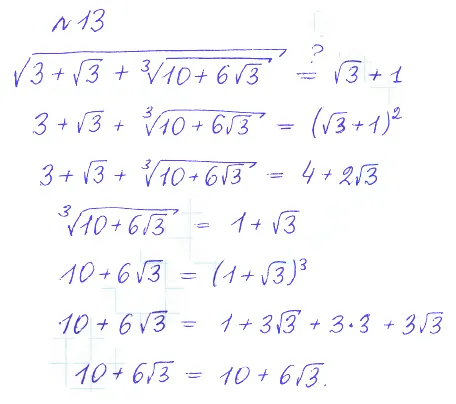 №13
√(3 + √3 + ∛(10 + 6√3)) ?= √3 + 1
3 + √3 + ∛(10 + 6√3) = (√3 + 1)²
3 + √3 + ∛(10 + 6√3) = 4 + 2√3
∛(10 + 6√3) = 1 + √3
10 + 6√3 = (1 + √3)³
10 + 6√3 = 1 + 3√3 + 3·3 + 3√3
10 + 6√3 = 10 + 6√3.